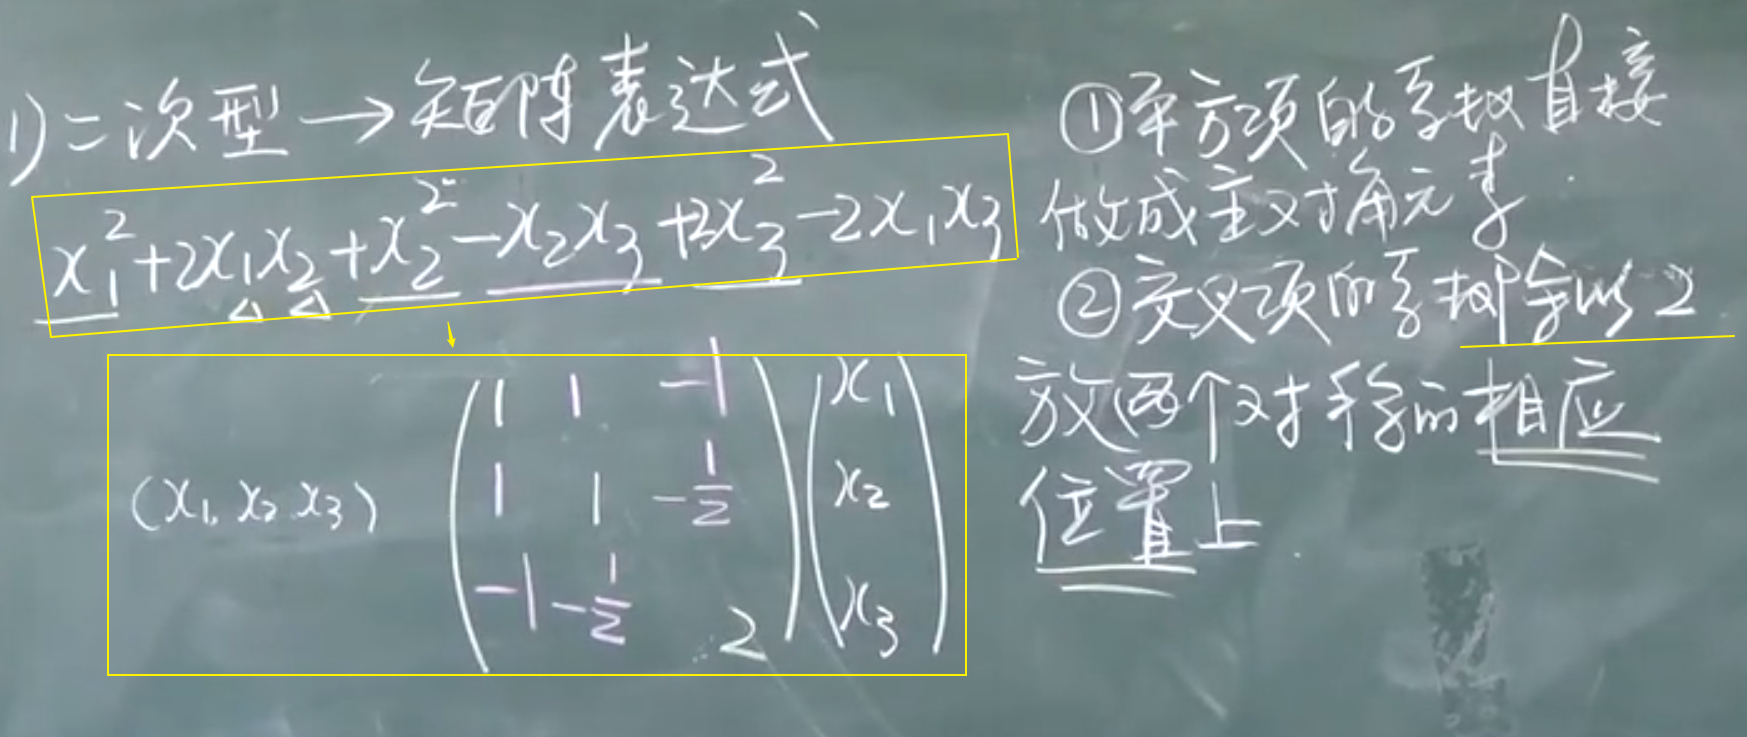 1) 二次型 → 矩阵表达式
x₁² + 2x₁x₂ + x₂² - x₂x₃ + 2x₃² - 2x₁x₃
(x₁, x₂ x₃) ( 1 1 -1 ) ( x₁ )
( 1 1 -1/2 ) ( x₂ )
( -1 -1/2 2 ) ( x₃ )
①平方项的系数直接
做成主对角元素.
②交叉项的系数除以2
放两个对称的相应
位置上.